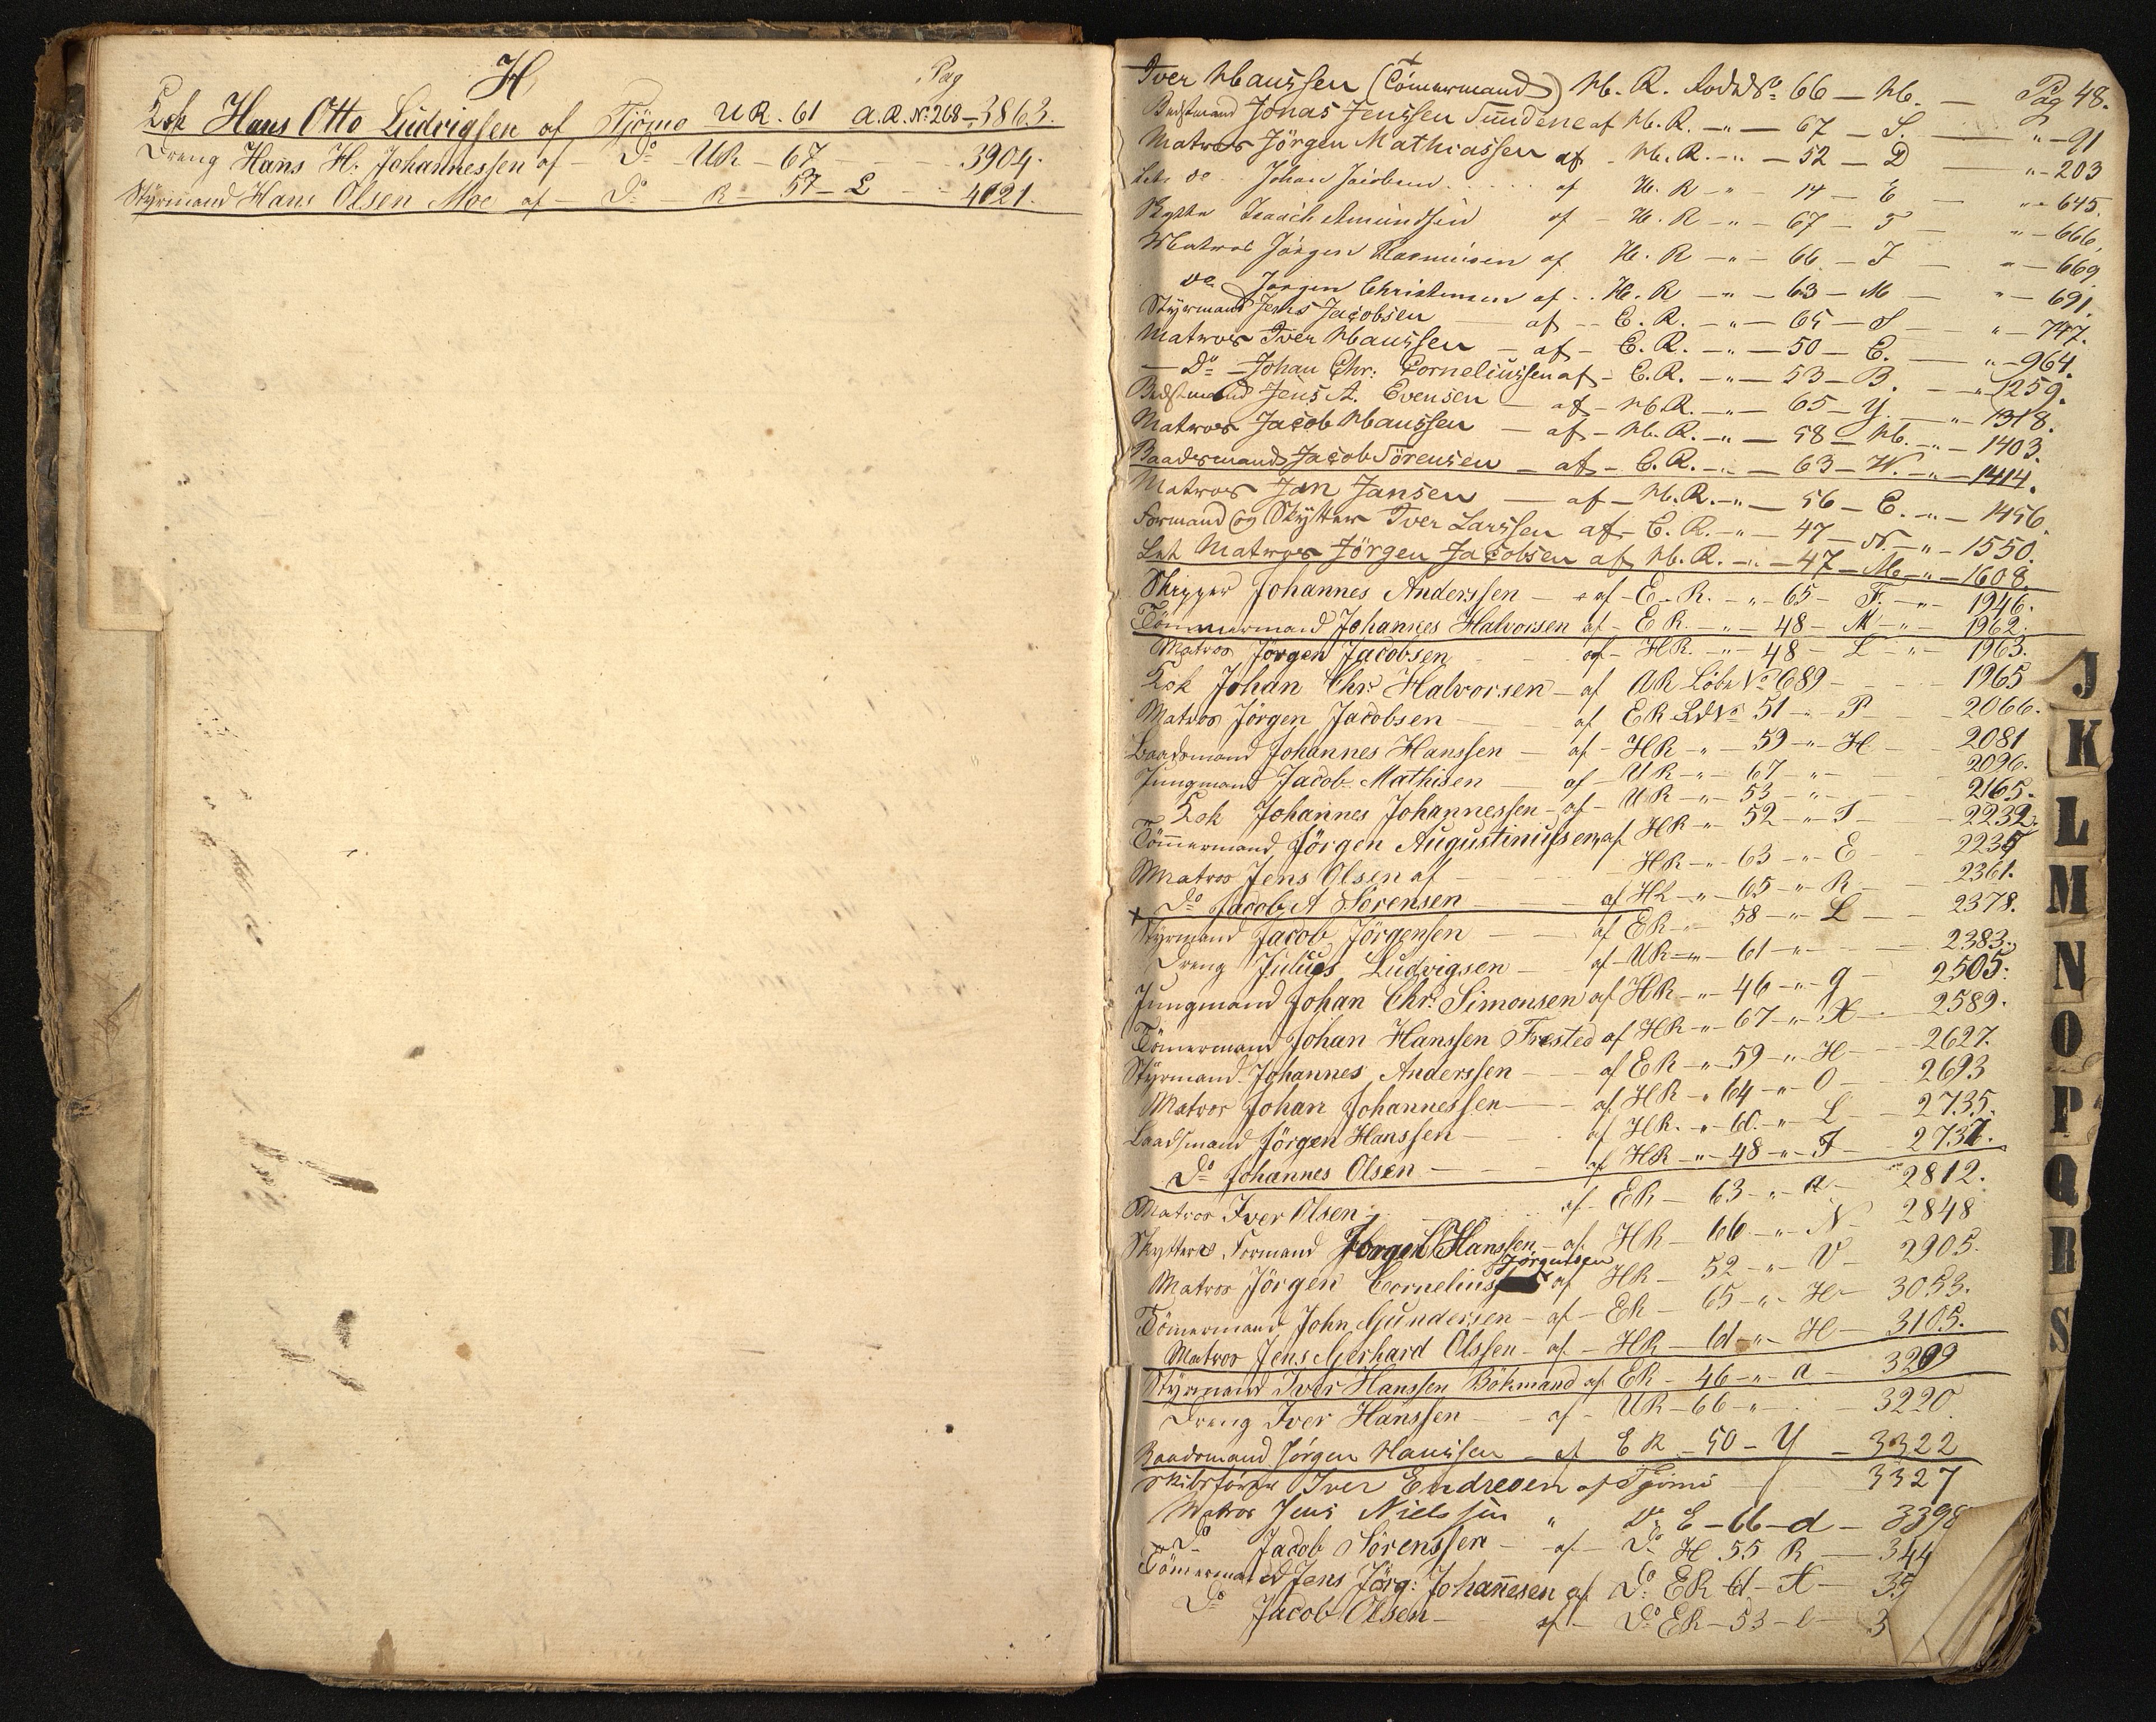 H
Pag
Kok Hans Otto Ludvigsen af Tjömo UR. 61 A.R. No. 268 — 3863.
Dreng Hans H. Johannessen af — Do — UR — 67 — 3904.
Styrmand Hans Olsen Moe af — Do — R — 57 — L — 4021.
Iver Hanssen (Tömermand) H. R. No. 66 — H. — Pag 48.
Jonas Jenssen af H. R. — " — 67 — S. — " — 91
Matros Jörgen Mathiassen af — H. R. — " — 52 — D — " — 203
Let do Johan Jacobsen af H. R — " 14 — E — " — 645.
Isaach Amundsen af — H. R — " — 67 — T — " — 666.
Matros Jörgen Rasmussen af H. R — " — 66 — J — " — 669
do Jörgen Christensen af H. R — " — 63 — M — " — 691.
Styrmand Jens Jacobsen — af — E. R. — " — 65 — S — " — 747.
Matros Iver Hanssen — af — E. R. — " — 50 — E. — " — 964.
— Do — Johan Chr: Corneliussen af — E. R. — " — 53 — B. — " 1259.
Jens A. Evensen — af — H. R. — " — 65 — Y. — " — 1318.
Matros Jacob Hanssen — af — H. R. — " — 58 — H. — " — 1403.
Baadsmand Jacob Sörensen — af — E. R. — " — 63 — W. — " — 1414.
Matros Jan Jansen — af — H. R. — " — 56 — E. — " — 1456.
Formand og Skytter Iver Larssen af — E. R. — " — 47 — N. — " — 1550.
Let Matros Jörgen Jacobsen af H. R. — " — 47 — M — " — 1608.
Skipper Johannes Anderssen — af — E. R. — " — 65 — F. — " — 1946.
Tömmermand Johannes Halvorsen af — E R. — " — 48 — M — " — 1962.
Matros Jörgen Jacobsen af — HR. — " — 48 — L — " — 1963.
Kok Johan Chr. Halvorsen — af AR Löbe No 689 — 1965
Matros Jörgen Jacobsen — af ER No 51 — " P — 2066.
Baadsmand Johannes Hanssen — af — HR — " — 59 — " — H — 2081
Jungmand Jacob Mathisen — af — UR — " — 67 — " — 2096.
Kok Johannes Johannessen — af — UR — " — 53 — " — 2165.
Tömmermand Jörgen Augustinussen af HR — " 52 — " — S — 2232.
Matros Jens Olsen af — HR — " — 63 — " — E — 2235
Do Jacob A Sörensen — af HR — " — 65 — " — R — 2361.
Styrmand Jacob Jörgensen — af ER — " 58 — " — L — 2378.
Dreng Julius Ludvigsen — af — UR — " — 61 — " — 2383.
Jungmand Johan Chr. Simonsen af HR — " — 46 — " — g — 2505.
Tömermand Johan Hanssen af HR — " — 67 — " — X — 2589.
Styrmand Johannes Anderssen — af ER — " — 59 — " — H — 2627.
Matros Johan Johannessen — af HR — " 64 — " — O — 2693
Baadsmand Jörgen Hanssen — af HR. — " — 60. — " — L — 2735.
Do Johannes Olsen — af HR — " — 48 — " — F — 2737.
Matros Iver Olsen — af — ER — 63 — " — a — 2812.
Skytter & Formand Jörgen Hanssen — af HR — 66 — " — N — 2848
Jörgensen
Matros Jörgen Cornelius af HR — 52 — " — V — 2905.
Tömermand John Gundersen — af — ER — 65 — " — H — 3053.
Matros Jens Gerhard Olssen — af — HR — 61 — " — H — 3105.
Styrmand Iver Hanssen Bökmand af ER — 46 — " — a — 3209
Dreng Iver Hanssen — af — UR — 66 — " — 3220
Baadsmand Jörgen Hanssen — af ER — 50 — Y — 3322
Skibsförer Iver Endresen af Tjömö — 3327
Matros Jens Nielssen " Do E — 66 — d — 3398
Do Jacob Sörenssen — af — Do H 55 R — 344
Tömermand Jens Jörg: Johannesen af Do ER 61 — X — 35
Do Jacob Olsen — af — Do ER — 53 — l — 3
J
K
L
M
N
O
P
Q
R
S